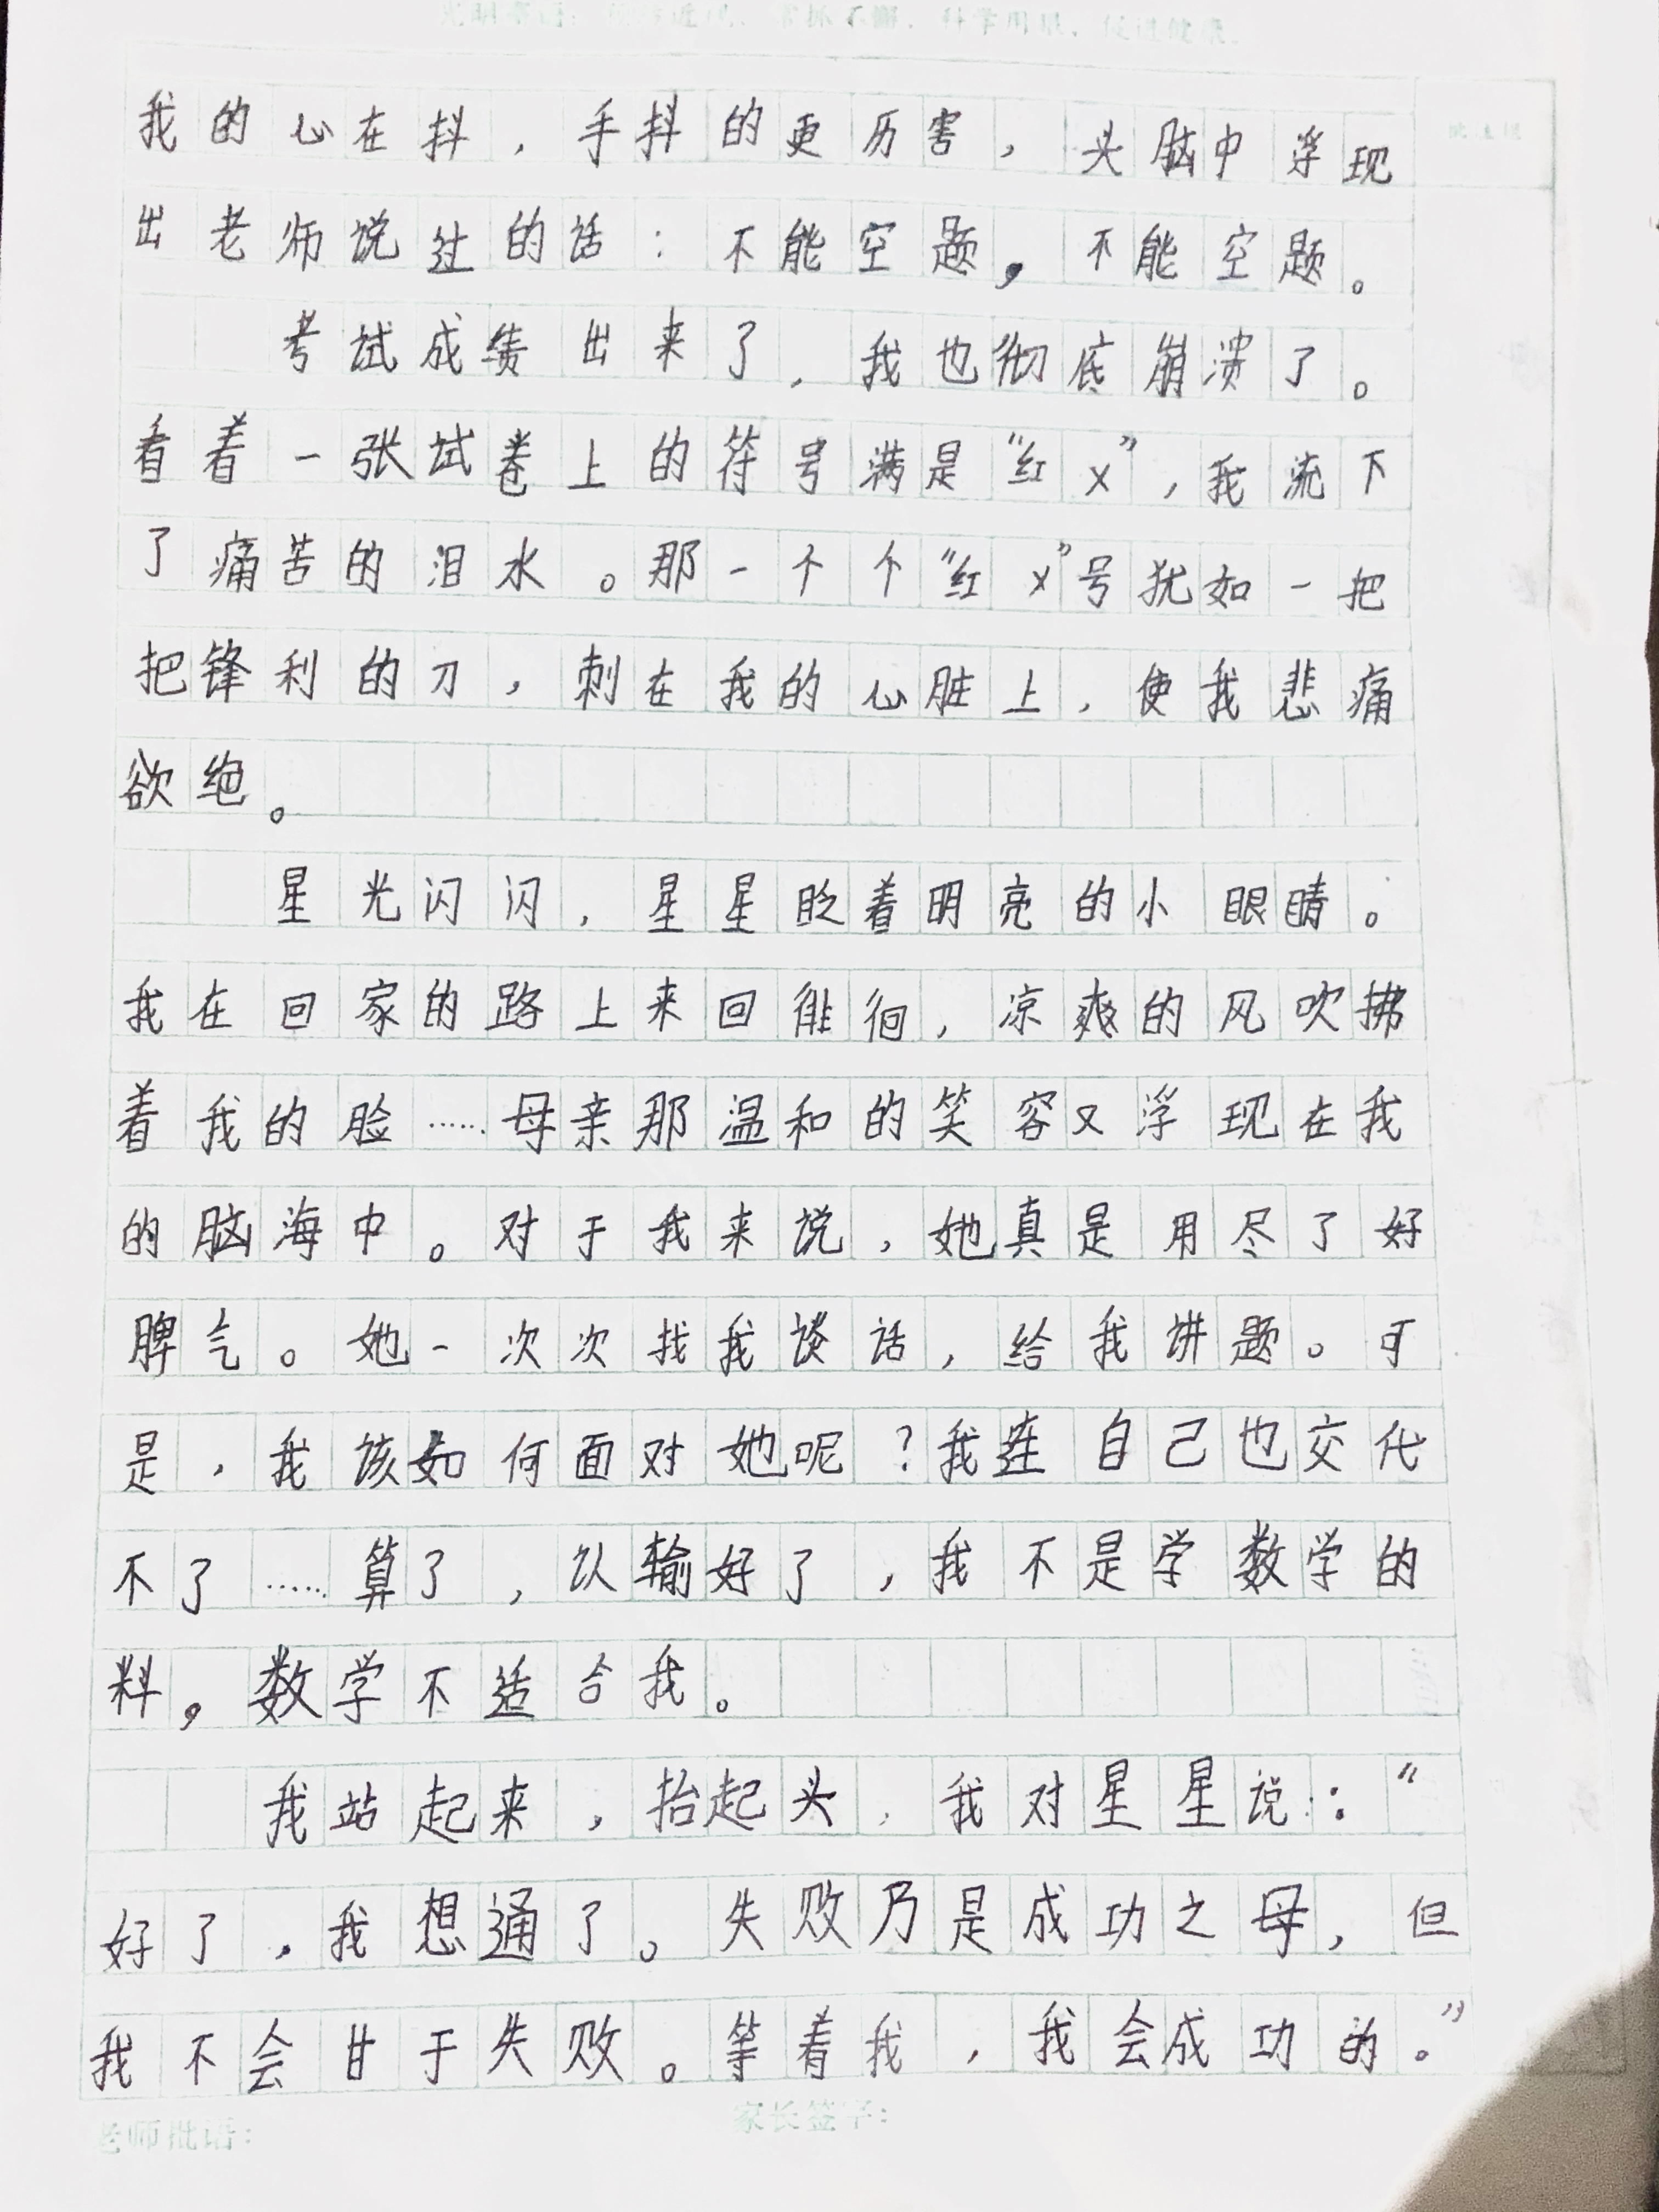 我的心在抖，手抖的更历害，头脑中浮现
出老师说过的话：不能空题，不能空题。
考试成绩出来了，我也彻底崩溃了。
看着一张试卷上的符号满是“红X”，我流下
了痛苦的泪水。那一个个“红X”号犹如一把
把锋利的刀，刺在我的心脏上，使我悲痛
欲绝。
星光闪闪，星星眨着明亮的小眼睛。
我在回家的路上来回徘徊，凉爽的风吹拂
着我的脸……母亲那温和的笑容又浮现在我
的脑海中。对于我来说，她真是用尽了好
脾气。她一次次找我谈话，给我讲题。可
是，我该如何面对她呢？我连自己也交代
不了……算了，认输好了，我不是学数学的
料，数学不适合我。
我站起来，抬起头，我对星星说：“
好了，我想通了。失败乃是成功之母，但
我不会甘于失败。等着我，我会成功的。”
老师批语：
家长签字：